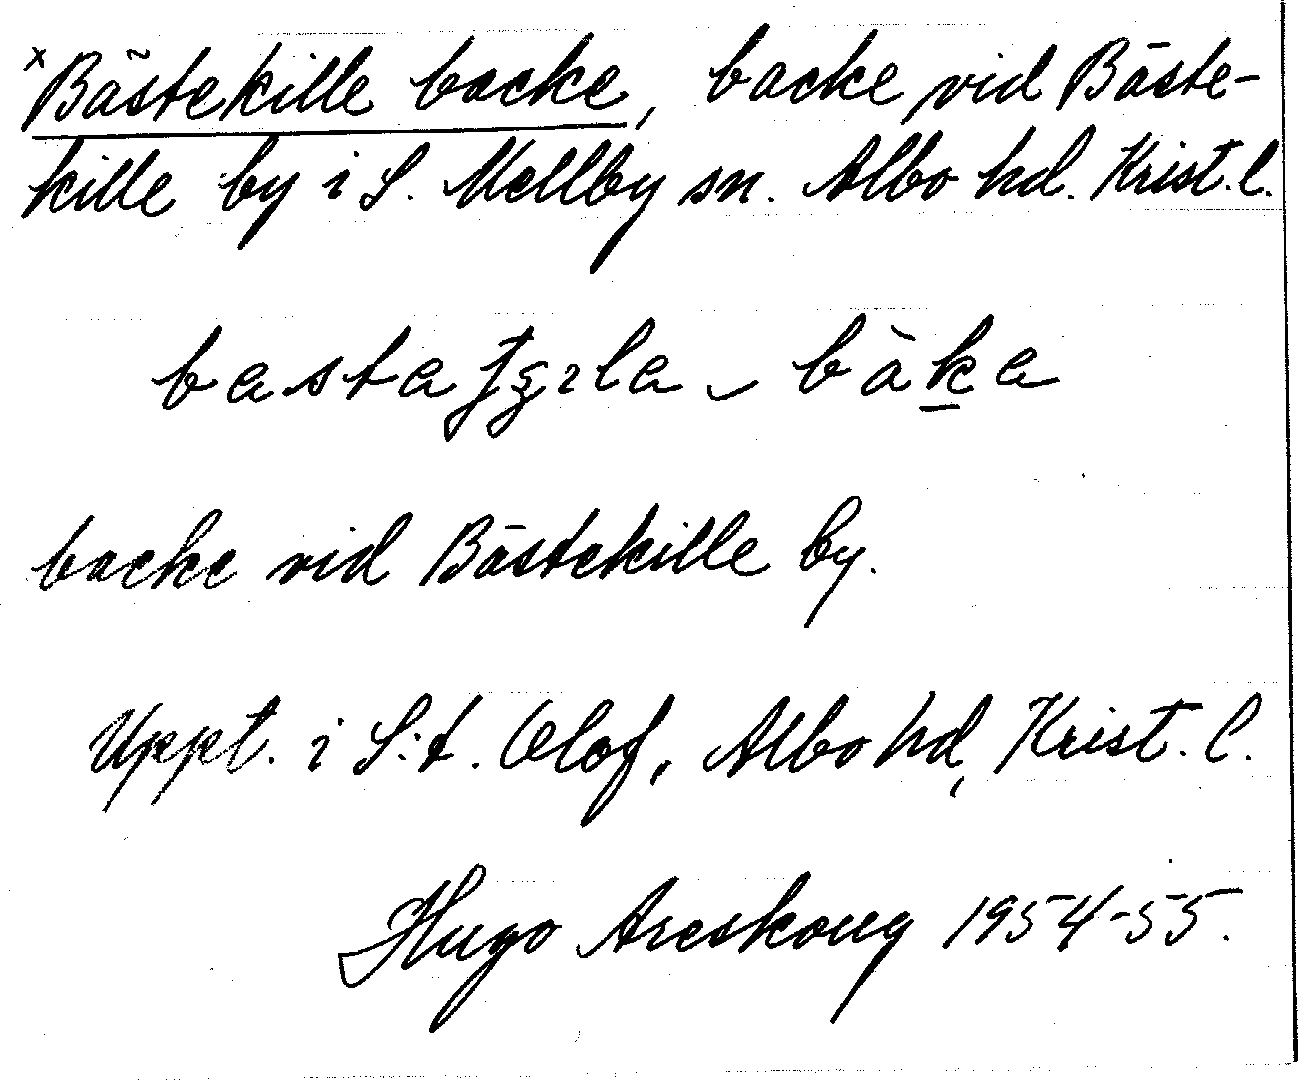 x Bästekille backe, backe vid Bäste-
kille by i S. Mellby sn. Albo hd. Krist. l.
backe vid Bästekille by.
Uppt. i S:t. Olof, Albo hd, Krist. l.
Hugo Areskoug 1954-55.